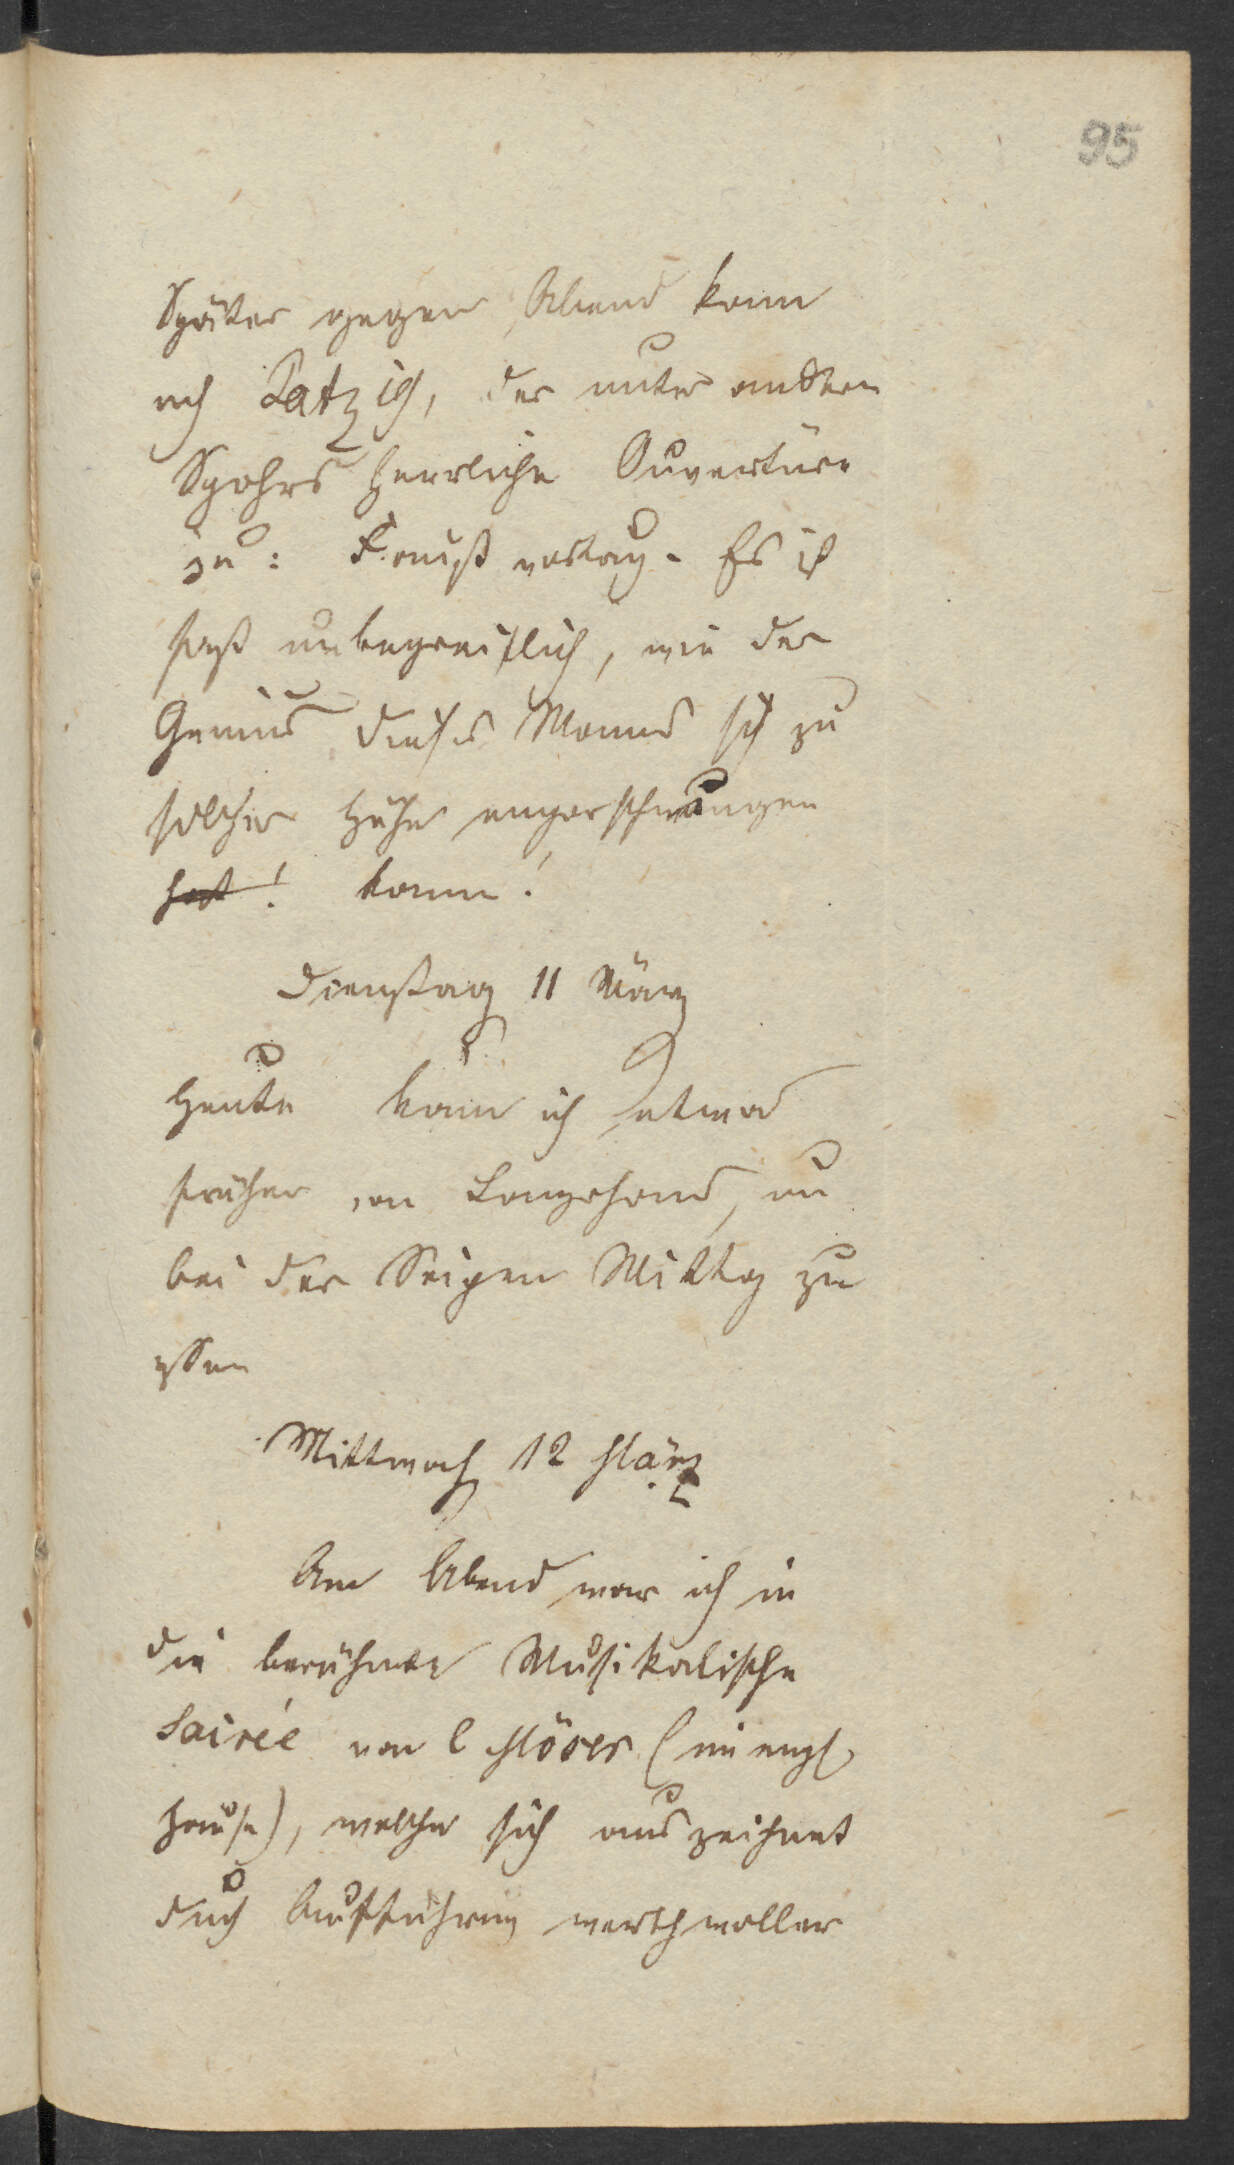 95
Später gegen Abend kam
nch Patzig, der unter andern
Spohrs herrliche Ouvertüre
zu: Faust vortrug. Es ist
fast unbegreiflich, wie der
Genius dieses Manns sich zu
solcher Höhe emporschwungen
hat! kann!
Dienstag 11 März
Heute kam ich etwas
früher von Langehand, um
bei der Seigen Mittag zu
essen
Mittwoch 12 März
Am Abend war ich in
die berühmte Musikalische
Soirée von C Möser (im engl.
Hause), welche sich auszeichnet
duch Aufführung werthvoller